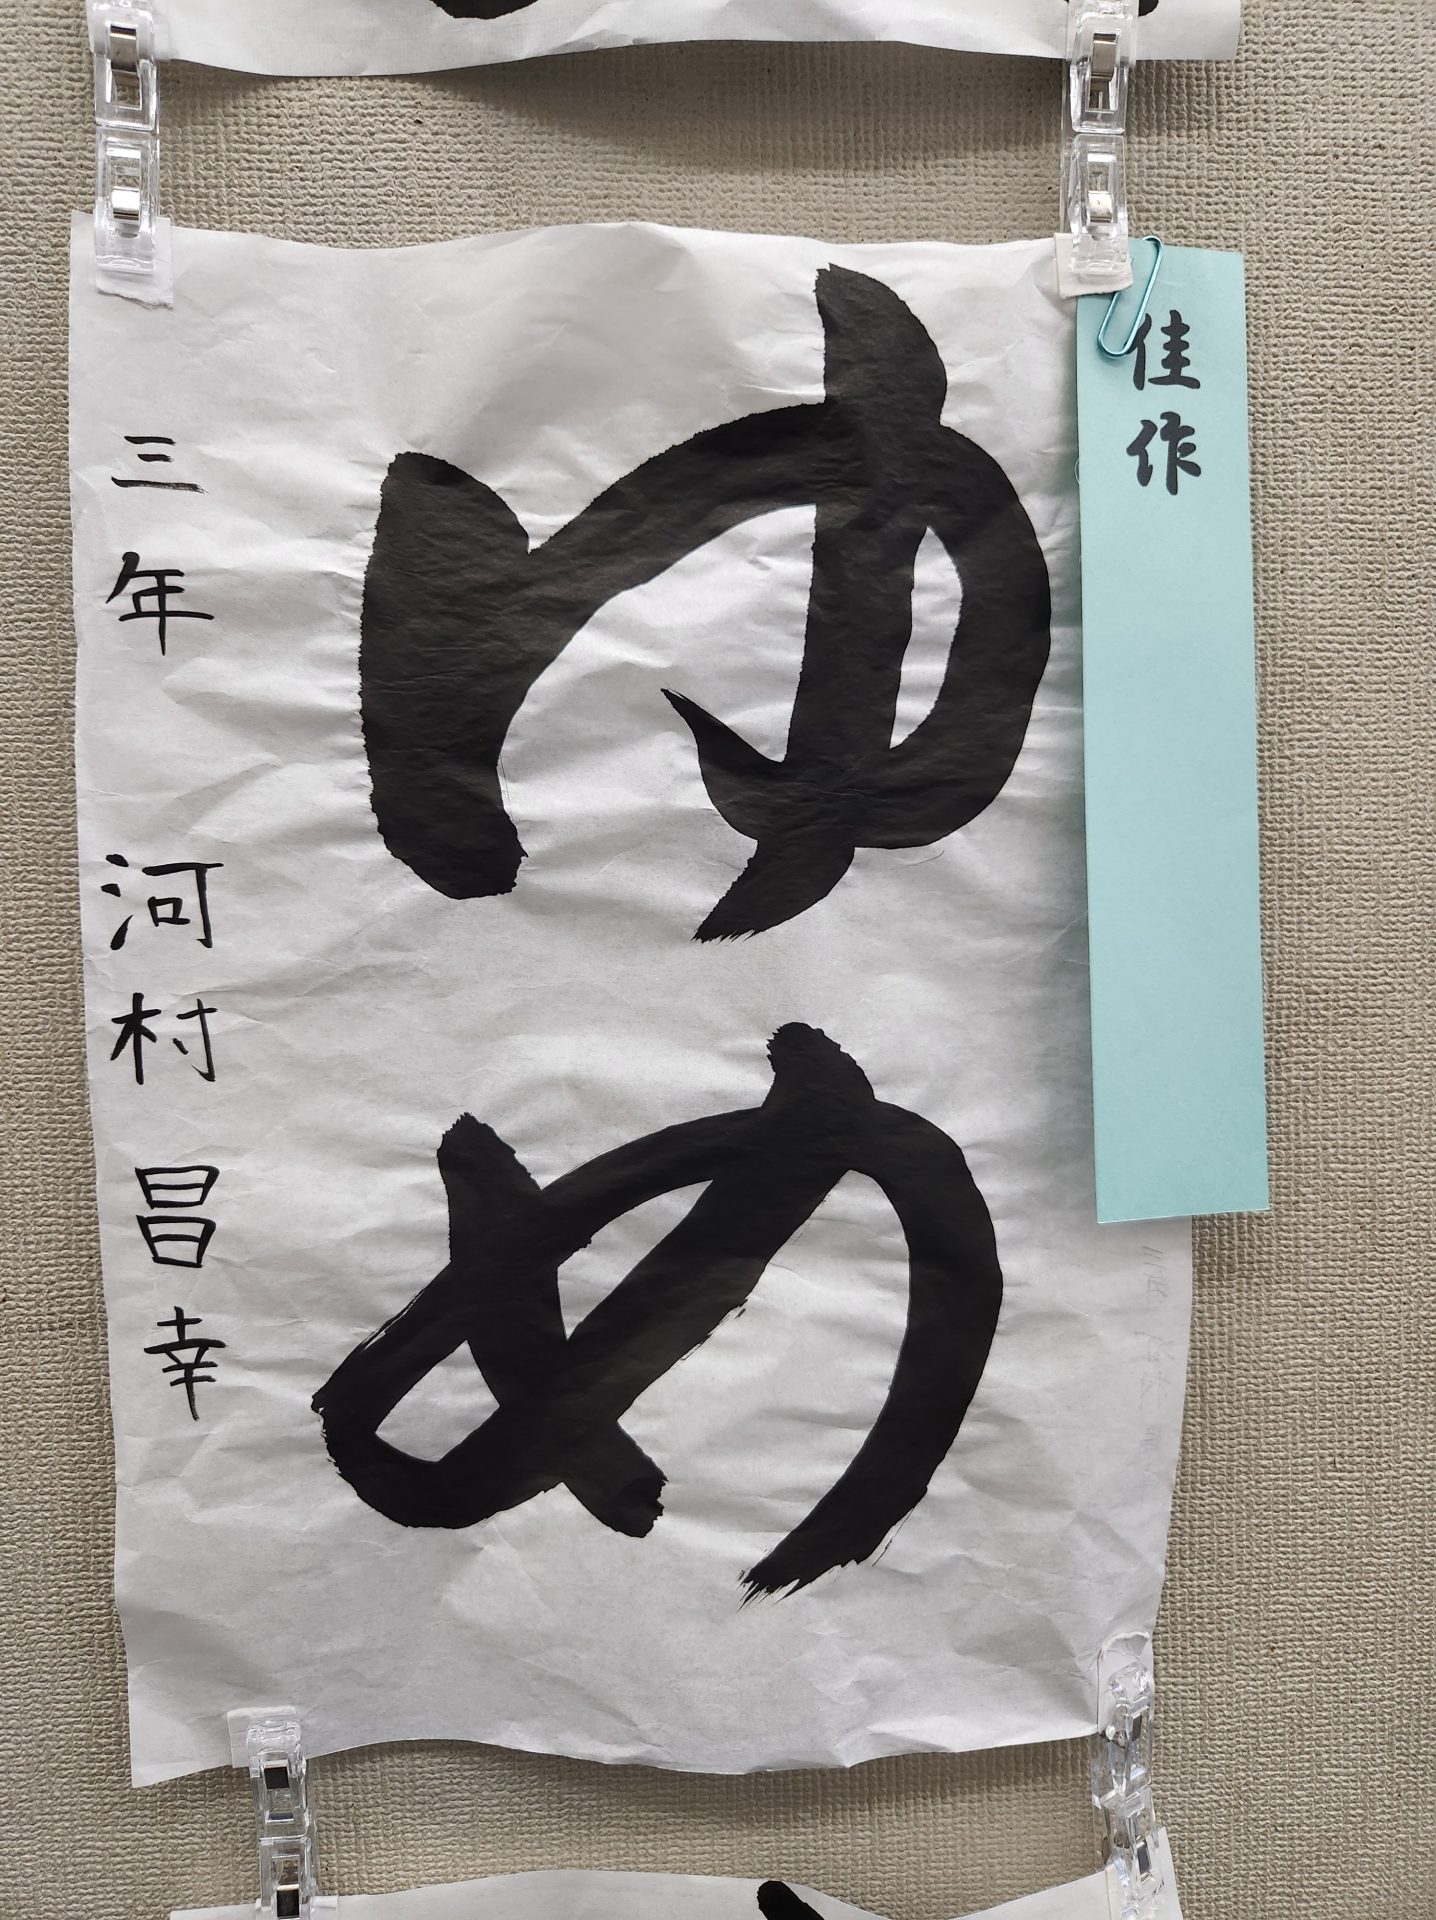 佳作
ゆめ
三年 河村昌幸